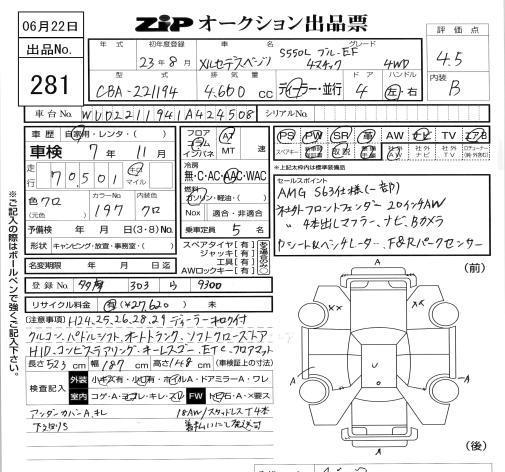 06月22日
ZIP オークション出品票
出品No.
281
年式 初年度登録 車名 グレード
23年8月 メルセデスベンツ S550L ブルーEF
4マチック 4WD
型式 排気量 ドア ハンドル
CBA-221194 4.600cc ディーラー・並行 4 左・右
評価点
4.5
内装
B
車台No. WDD2211941A424508 シリアルNo.
車歴 自家用・レンタ・( )
車検 7年11月
走行 70,501 キロ マイル
色 クロ カラーNo. 197 内装色 クロ
(元色)
予備検 年 月 日 (3・8) No.
形状 キャンピング・放置・事務室・( )
名変期限 年 月 日迄
フロア コラム インパネ AT MT 速
冷房
無・C・AC・AAC・WAC
燃料
ガソリン・軽油・( )
Nox 適合・非適合
乗車定員 5名
スペアタイヤ[有]
ジャッキ[有]
工具[有]
AWロックキー[有]
PS PW SR 革 AW ナビ TV エアB
※上記太枠内は標準装備品
セールスポイント
AMG S63仕様(一部)
社外フロントフェンダー 20インチAW
〃 4本出しマフラー、ナビ、Bカメラ
クーシート&ベンチレーター、F&Rパークセンサー
登録No. 303 9300
リサイクル料金 有(¥27,620) 未
(注意事項) H24.25.26.28.29ディーラーキロク付
クルコン、パドルシフト、オートトランク、ソフトクローズドア
HID、コンビステアリング・キーレスゴー、ETC、フロアマット
長さ523cm 幅187cm 高さ148cm (車検証上の寸法)
検査記入 外装 小キズ有・小凹有・ホイルA・ドアミラーA・ワレ
室内 コゲ・A・ヨゴレ・キレ・スレ FW トビ石・A・×要ス
アンダーカバーA、キレ
下廻サビ
18AW/スタッドレスT4本
着払いにて発送可
※ご記入の際はボールペンで強くご記入下さい。
(前)
A
××
A
A
U
A
(後)